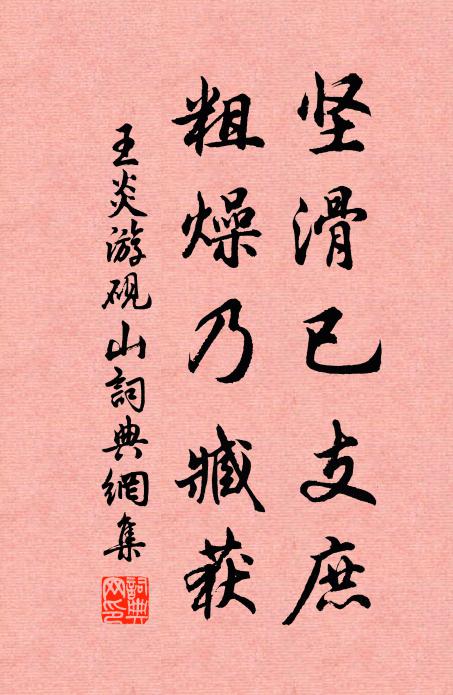 坚滑已支庶
粗燥乃臧获
王炎游砚山詞典網集
詞典
网印